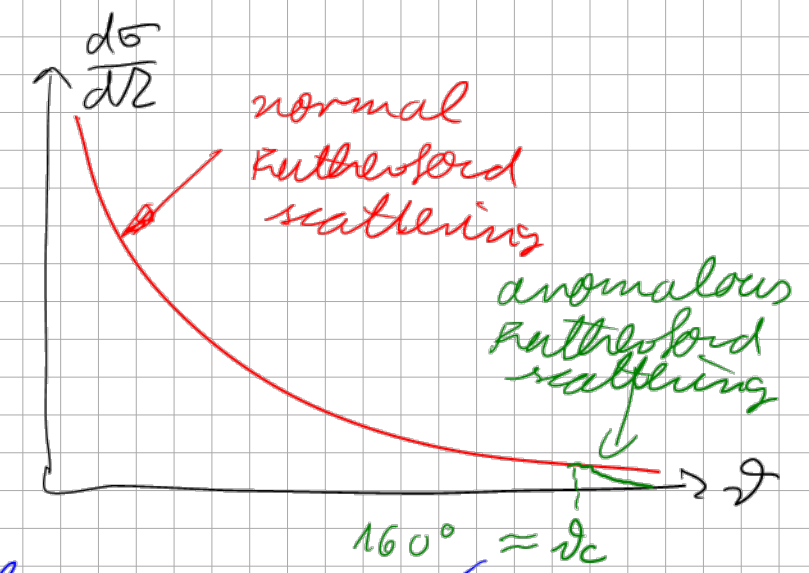 dσ
dΩ
normal
Rutherford
scattering
anomalous
Rutherford
scattering
ϑ
160° ≈ ϑc